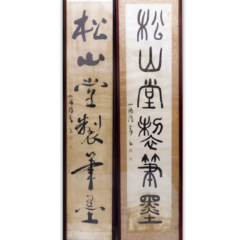 松山堂製筆墨
松山堂製筆墨